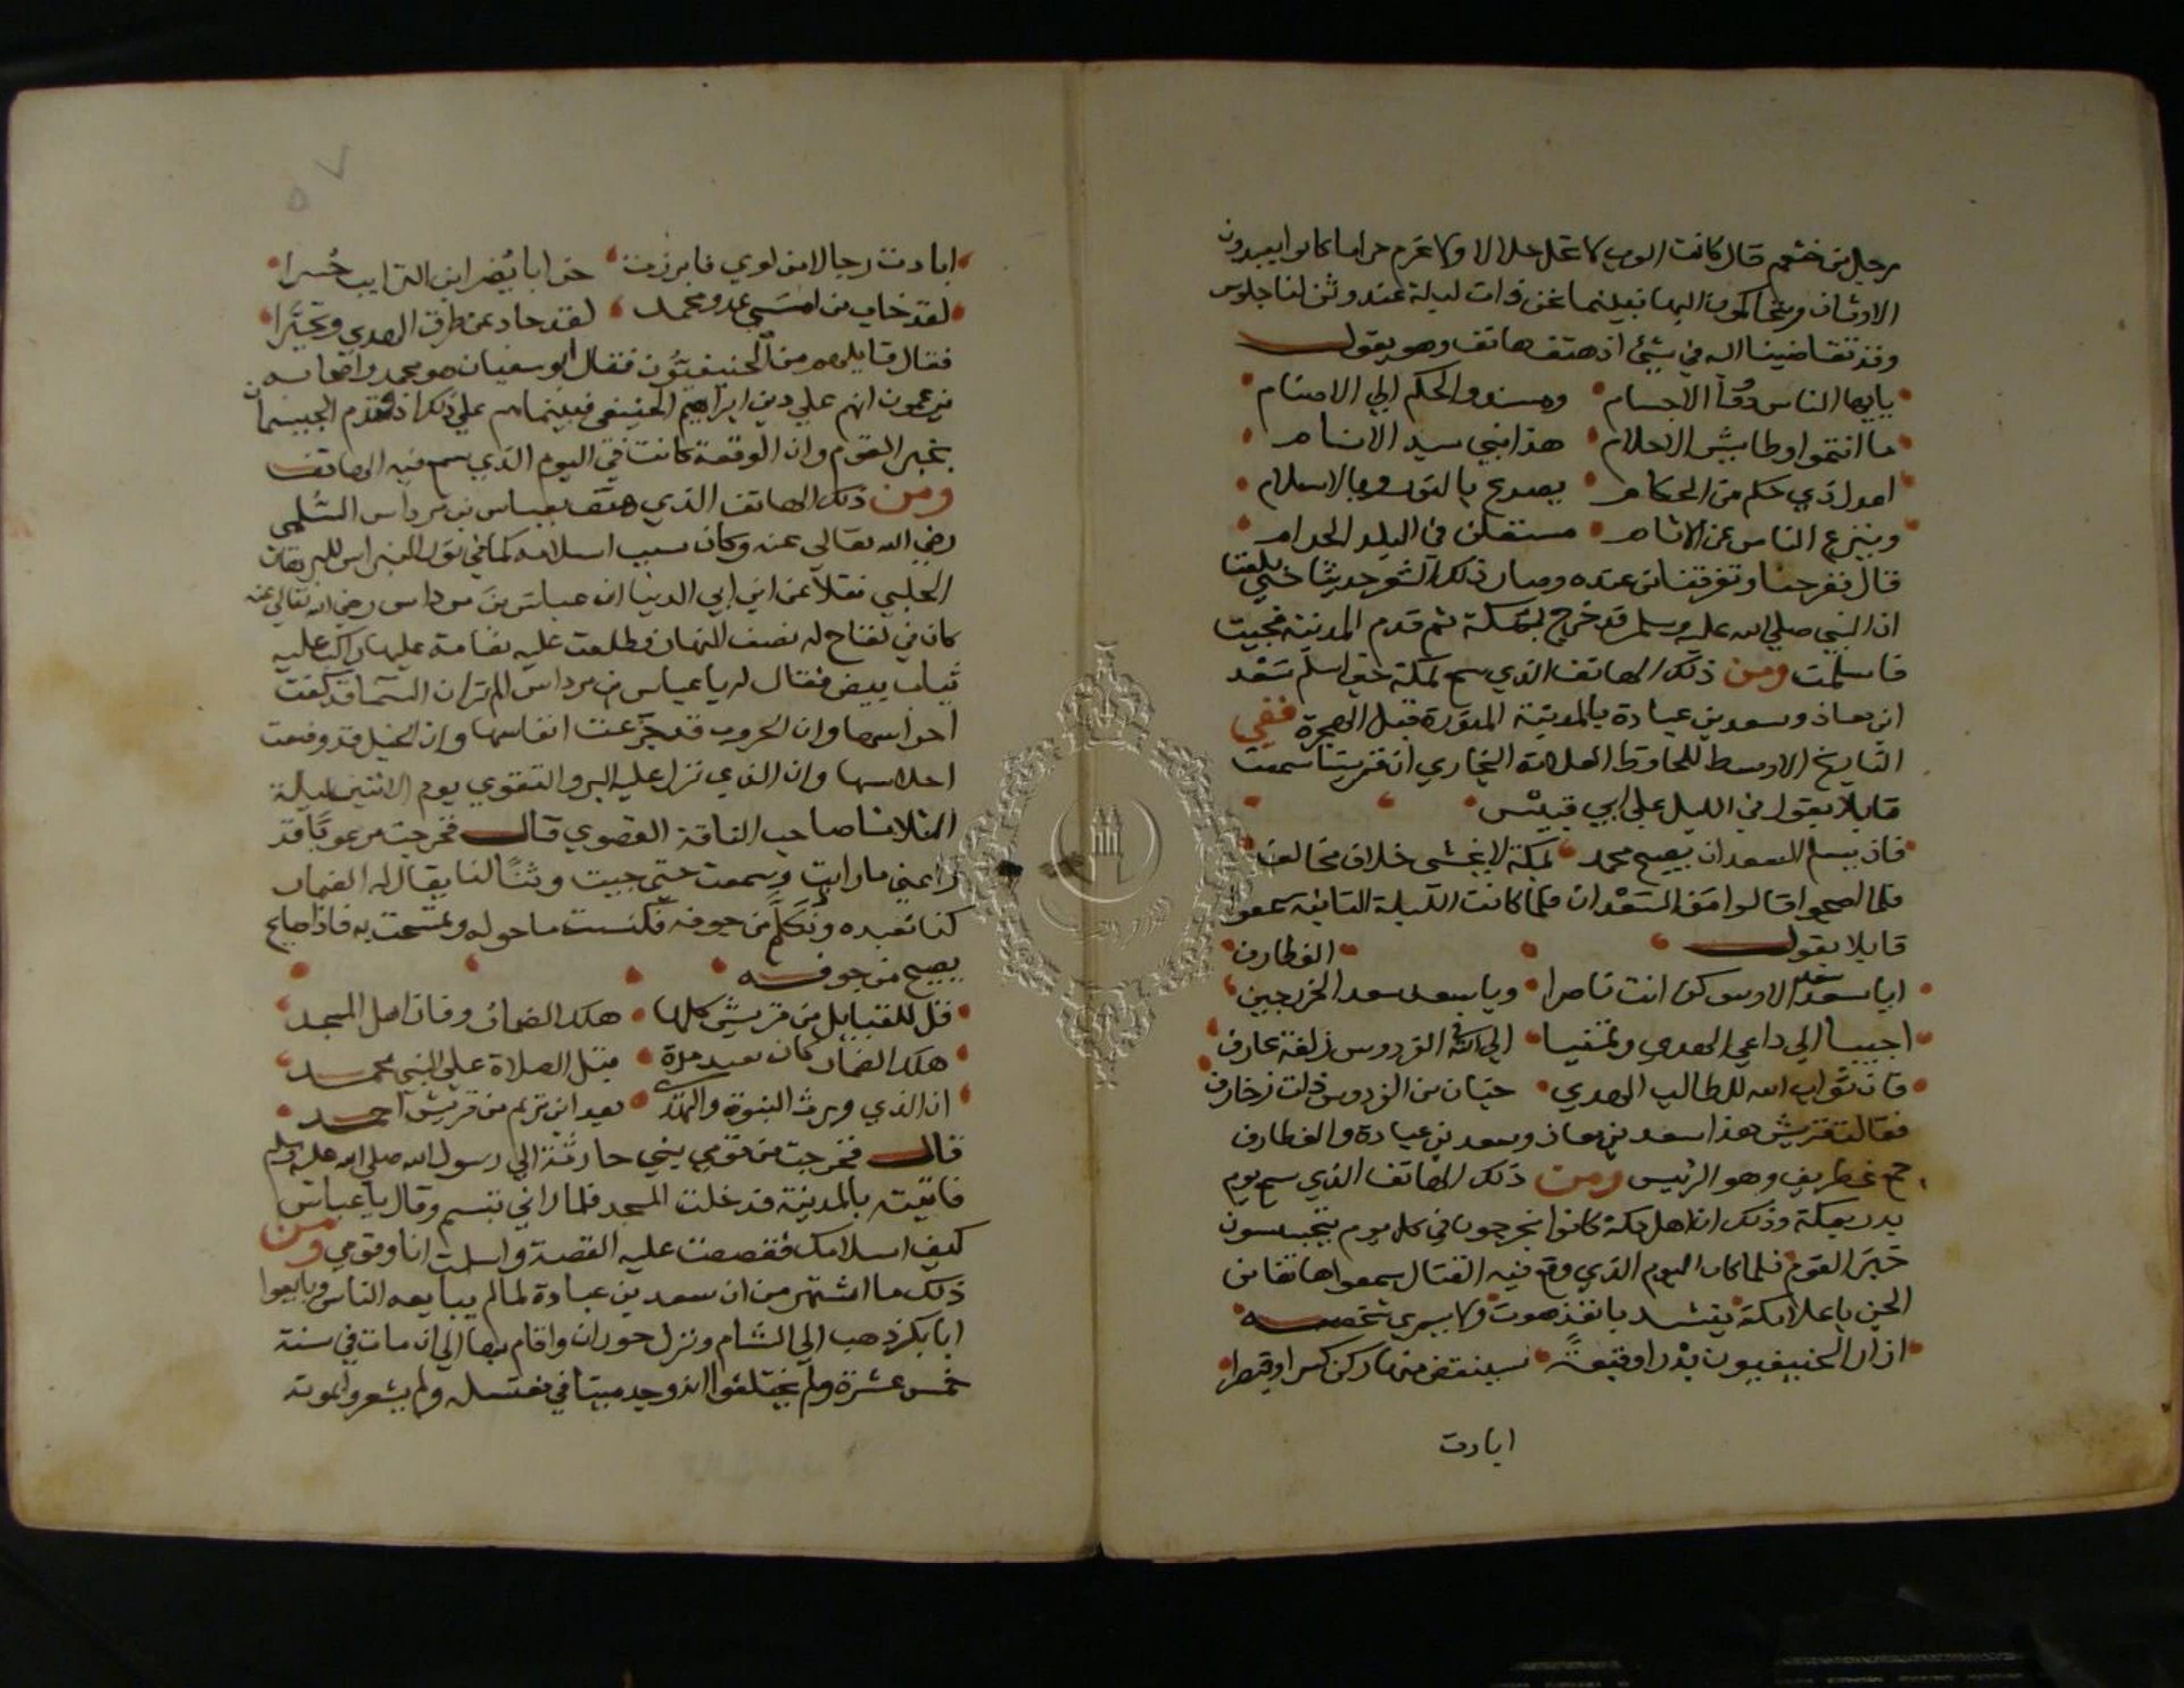 رجل من خثعم قال كانت العرب لا تحل حلالا ولا تحرم حراما كانوا يعبدون
الاوثان ويتحاكمون اليها فبينما نحن ذات ليلة عند وثن لنا جلوس
وقد تقاضينا اليه في شئ اذ هتف هاتف وهو يقول
يايها الناس ذووا الاجسام ومسندوا الحكم الي الاصنام
ما انتموا وطايش الاحلام هذا نبي سيد الانام
اعدل ذي حكم من الحكام يصدع بالنور وبالاسلام
وينزع الناس عن الاثام مستعلن في البلد الحرام
قال ففزعنا وتفرقنا من عنده وصار ذلك الشعر حديثا حتي بلغنا
ان النبي صلي الله عليه وسلم قد خرج بمكة ثم قدم المدينة فجيت
فاسلمت ومن ذلك الهاتف الذي سمع بمكة حتي اسلم سعد
ابن معاذ وسعد بن عبادة بالمدينة المنورة قبل الهجرة ففي
التاريخ الاوسط للحافظ العلامة البخاري ان قريشا سمعت
قايلا يقول في الليل علي ابي قبيس
فان يسلم السعدان يصبح محمد بمكة لا يخشى خلاف مخالف
فلما اصبحوا قالوا من السعدان فلما كانت الليلة الثانية سمعوا
قايلا يقول الغطارف
ايا سعد سعد الاوس كن انت ناصرا ويا سعد سعد الخزرجين
اجيبا الي داعي الهدي وتمنيا الي الله في الفردوس زلفة عارف
فان ثواب الله للطالب الهدي جنان من الفردوس ذات زخارف
فقالت قريش هذا سعد بن معاذ وسعد بن عبادة والغطارف
جمع غطريف وهو الرئيس ومن ذلك الهاتف الذي سمع يوم
بدر بمكة وذلك ان اهل مكة كانوا يخرجون في كل يوم يتجسسون
خبر القوم فلما كان اليوم الذي وقع فيه القتال سمعوا هاتفا من
الجن باعلا مكة ينشد بانفذ صوت ولا يري شخصه
ازار الحنيفيون بدرا وقيعة سينقض منها ركن كسرا وقيصرا
ابادت
ابادت رجالا من لوي فابرزت خرايا يضربن الترايب حسرا
لقد خاب من امسي عدو محمد لقد حاد عن طرق الهدي وتحيرا
فقال قايلهم من الحنيفيون فقال ابو سفيان هو محمد واصحابه
يزعمون انهم علي دين ابراهيم الحنيفي فبينما هم علي ذلك اذ قدم الحيسمان
بخبر القوم وان الوقعة كانت في اليوم الذي سمع فيه الهاتف
ومن ذلك الهاتف الذي هتف بعباس بن مرداس السلمي
رضي الله تعالي عنه وكان سبب اسلامه كما في نور النبراس للبرهان
الحلبي نقلا عن ابن ابي الدنيا ان عباس بن مرداس رضي الله تعالي عنه
كان في لقاح له نصف النهار فطلعت عليه نعامة عليها راكب عليه
ثياب بيض فقال له يا عباس بن مرداس الم تر ان السما قد كفت
احراسها وان الحروب قد جرعت انفاسها وان الخيل قد وضعت
احلاسها وان الذي نزل عليه البر والتقوي يوم الاثنين ليلة
الثلاثا صاحب الناقة القصوي قال فخرجت مرعوبا قد
راعني ما رايت وسمعت حتي جيت وثنا لنا يقال له الضمار
كنا نعبده ونكلم من جوفه فكنست ما حوله وتمسحت به فاذا صايح
يصيح من جوفه
قل للقبايل من قريش كلها هلك الضمار وفاز اهل المسجد
هلك الضمار كان يعبد مرة قبل الصلاة علي النبي محمد
ان الذي ورث النبوة والهدي بعد ابن مريم من قريش احمد
قال فخرجت من قومي بني حارثة الي رسول الله صلي الله عليه وسلم
فاتيته بالمدينة فدخلت المسجد فلما راني تبسم وقال يا عباس
كيف اسلامك فقصصت عليه القصة واسلمت انا وقومي ومن
ذلك ما اشتهر من ان سعد بن عبادة لما لم يبايعه الناس وبايعوا
ابا بكر ذهب الي الشام ونزل حوران واقام بها الي ان مات في سنة
خمس عشرة ولم يختلفوا انه وجد ميتا في مغتسله ولم يشعروا بموته